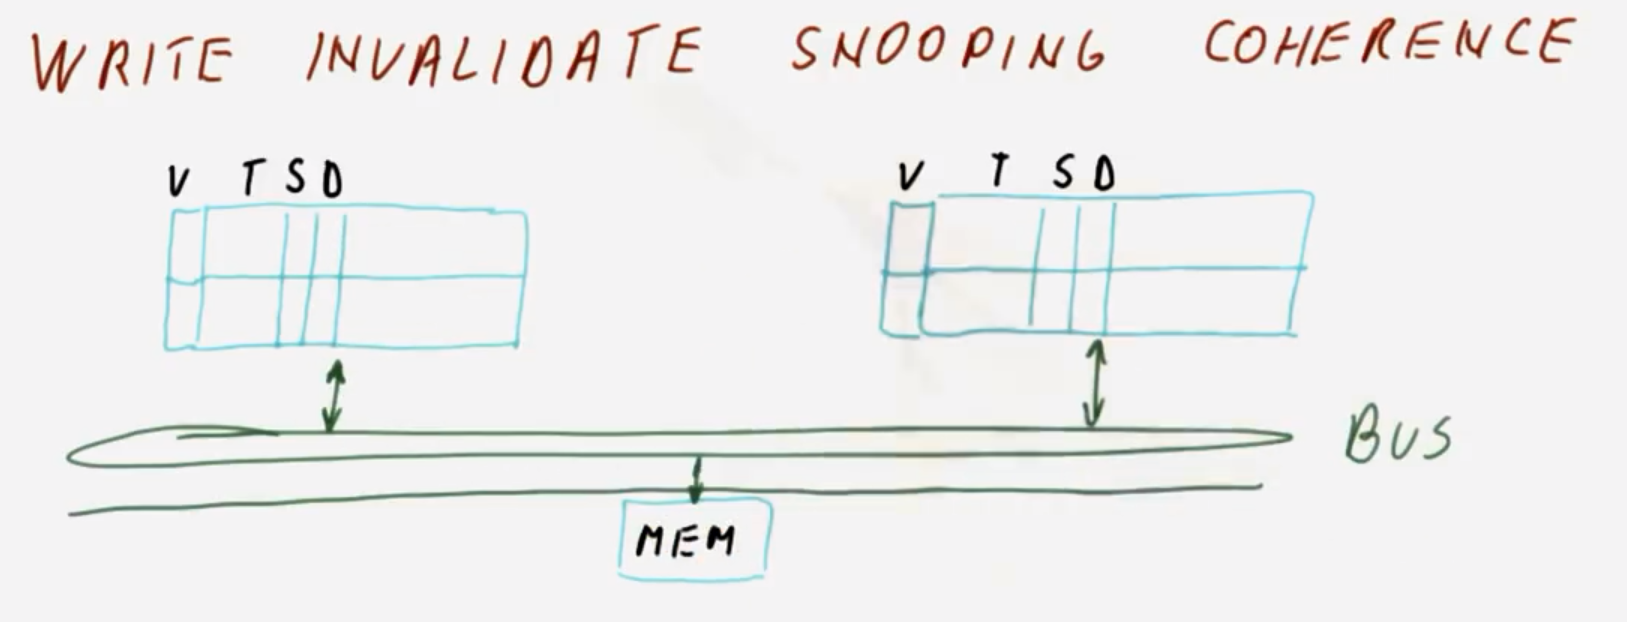 WRITE INVALIDATE SNOOPING COHERENCE
V T S D
V T S D
BUS
MEM